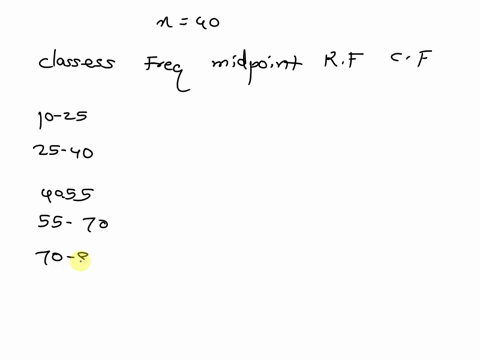 n = 40
classess Freq midpoint R.F C.F
10-25
25-40
4055
55- 70
70-8